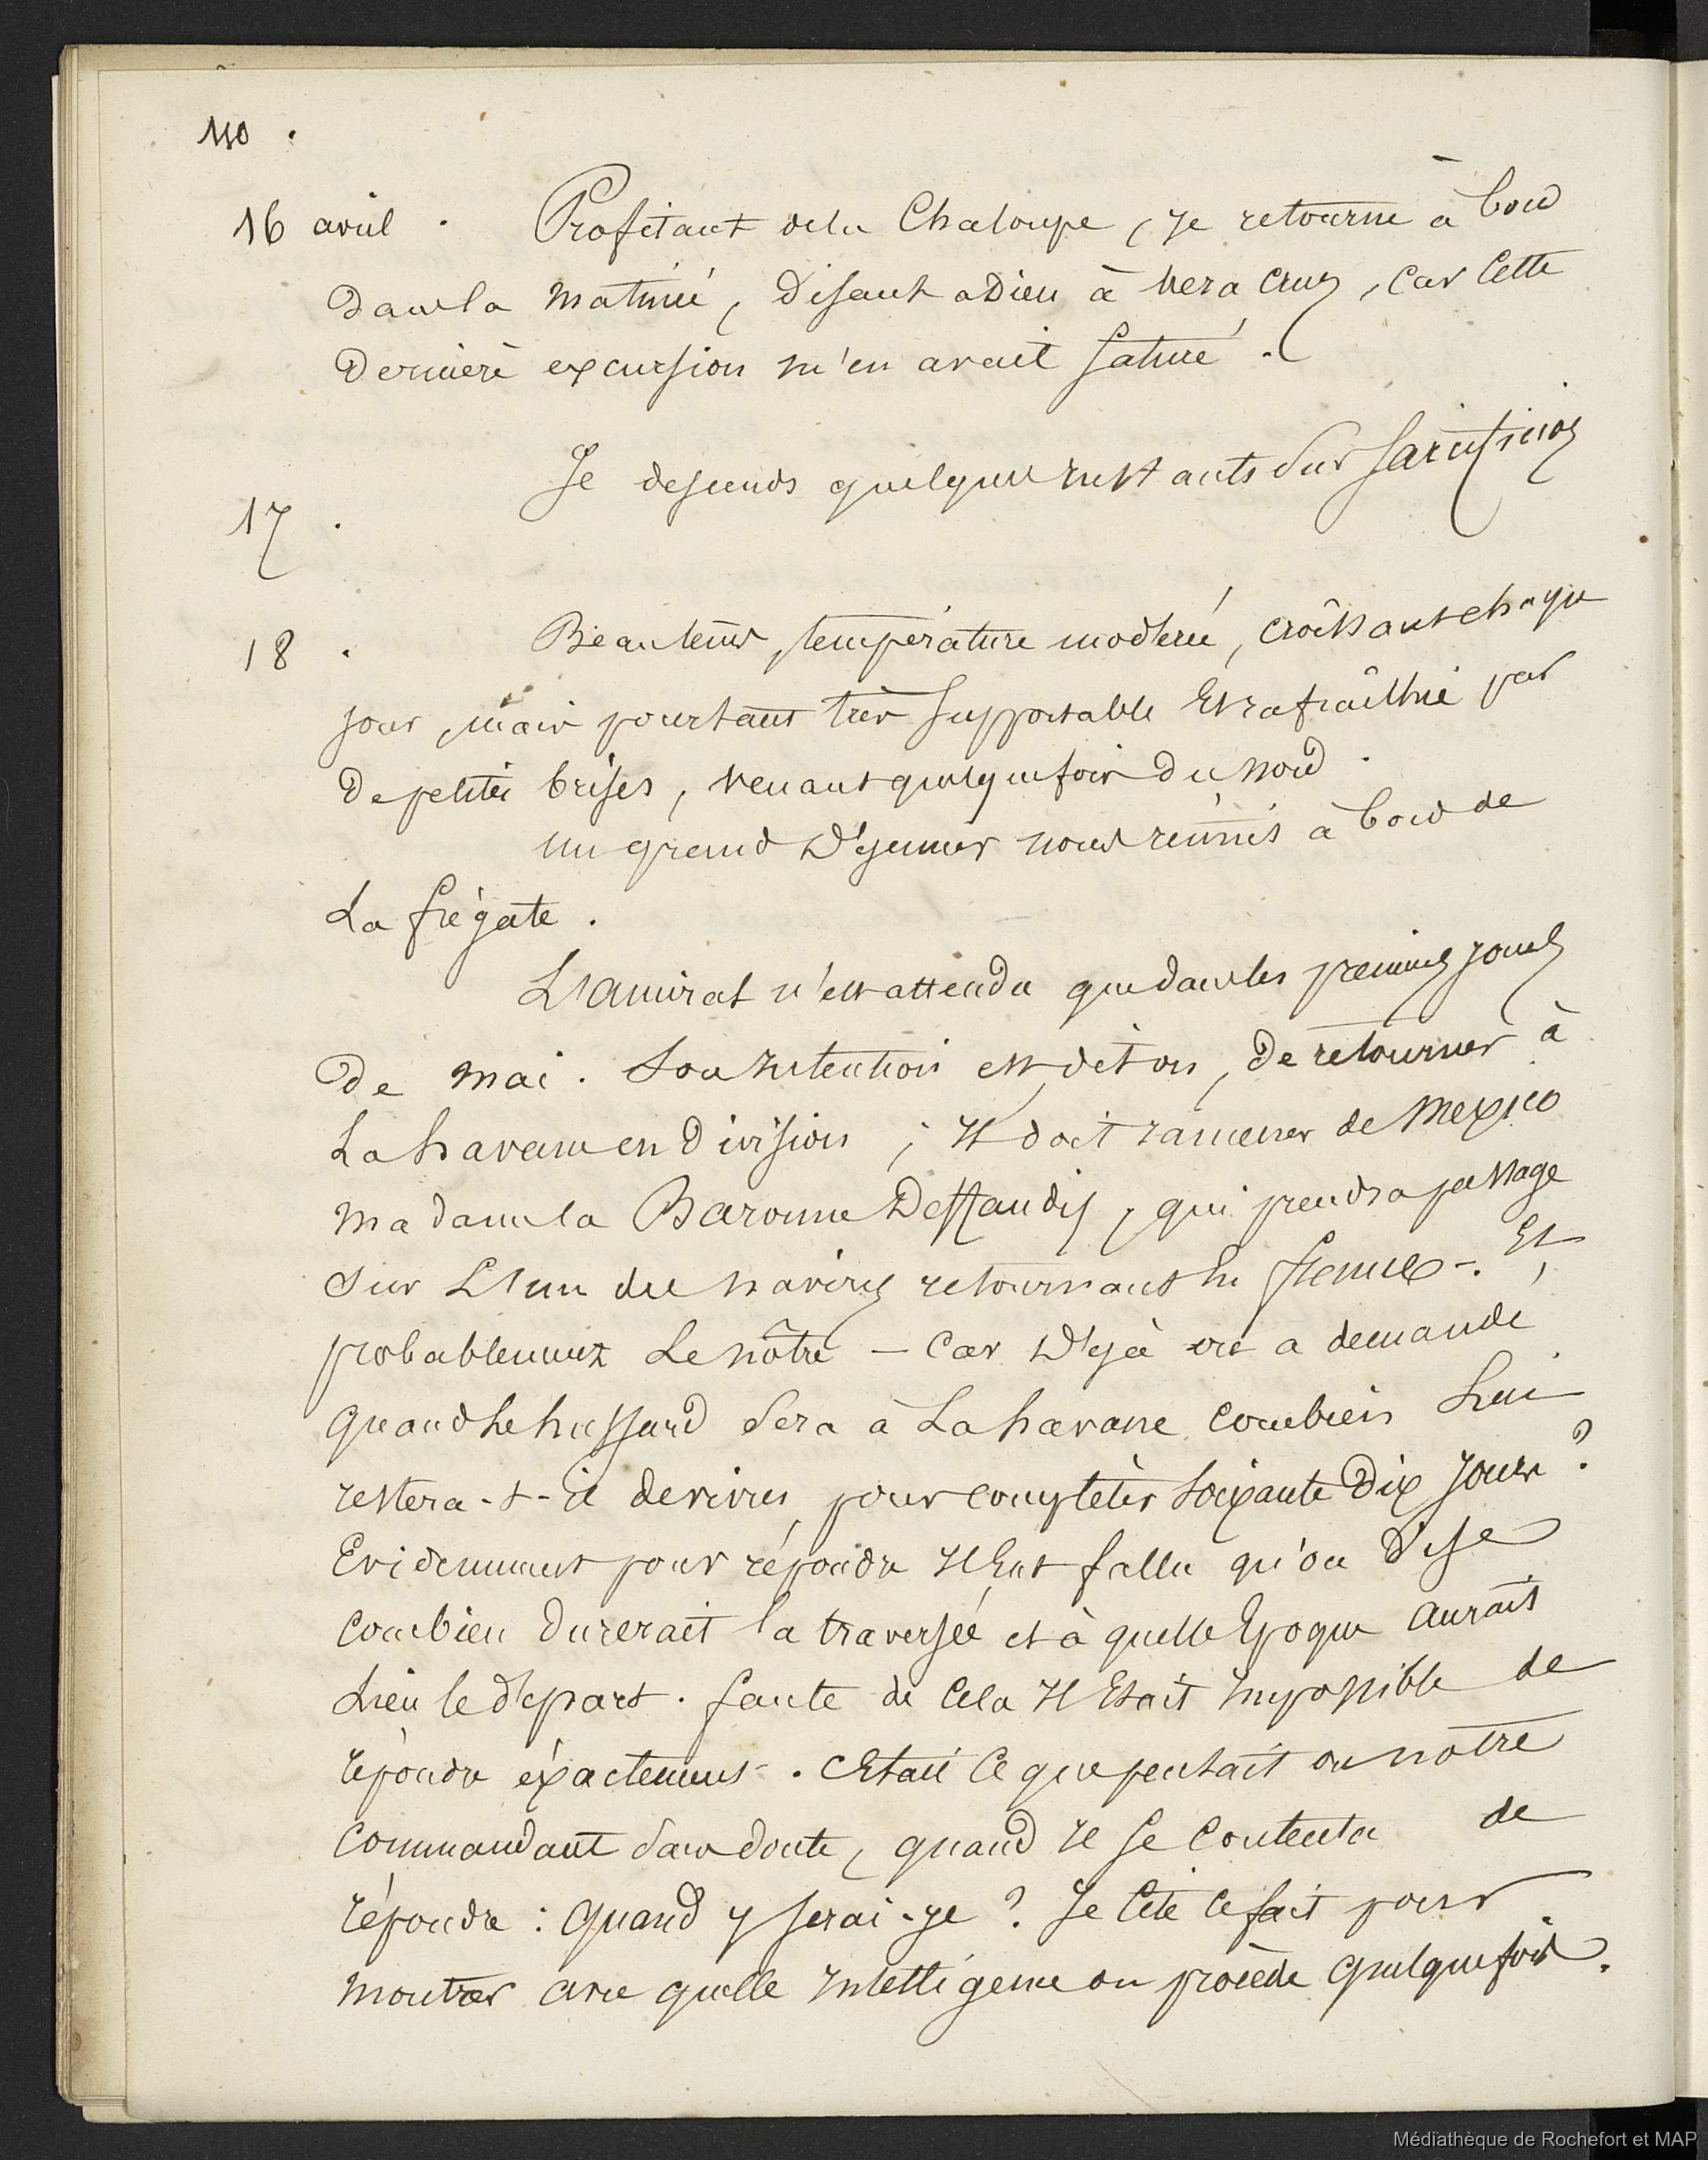 110.
16 avril. Profitant dela Chaloupe, je retourne à bord
Dans la matinée, Disant aDieu à Vera Cruz, Car Cette
Dernière excursion m'en avait saturé.
Je descends quelques instants sur Sacrificios
17.
18. Beau tems, température modérée, croîssant chaque
jour, mais pourtant très supportable Et rafraîchie par
De petites brises, venant quelquefois Du nord.
un grand Déjeuner nous réunis à bord de
La frégate.
L'amiral n'est attendu que dans les premiers jours
De mai. Son intention est, dit on, De retourner à
La havane en Division; Il doit ramener de Mexico
Madame la Baronne Deffaudis, qui prendra passage
Sur L'un des navires retournant En france -. Et,
probablement Le nôtre - Car Déjà on a demandé
quand Le hussard Sera à La havane combien Lui
restera-t-il de vivres, pour complèter Soixante Dix jours?
Evidemment pour répondre Il Eut fallu qu'on Dise
Combien Durerait la traversée et à quelle Epoque aurait
Lieu le départ. faute de Cela Il Etait impossible de
répondre éxactement. Etait Ce que pensait on notre
Commandant Sans doute, quand Il Se Contenta de
répondre: quand y serai-je? Je Cite Ce fait pour
montrer avec quelle Intelligence on procède quelquefois.
Médiathèque de Rochefort et MAP